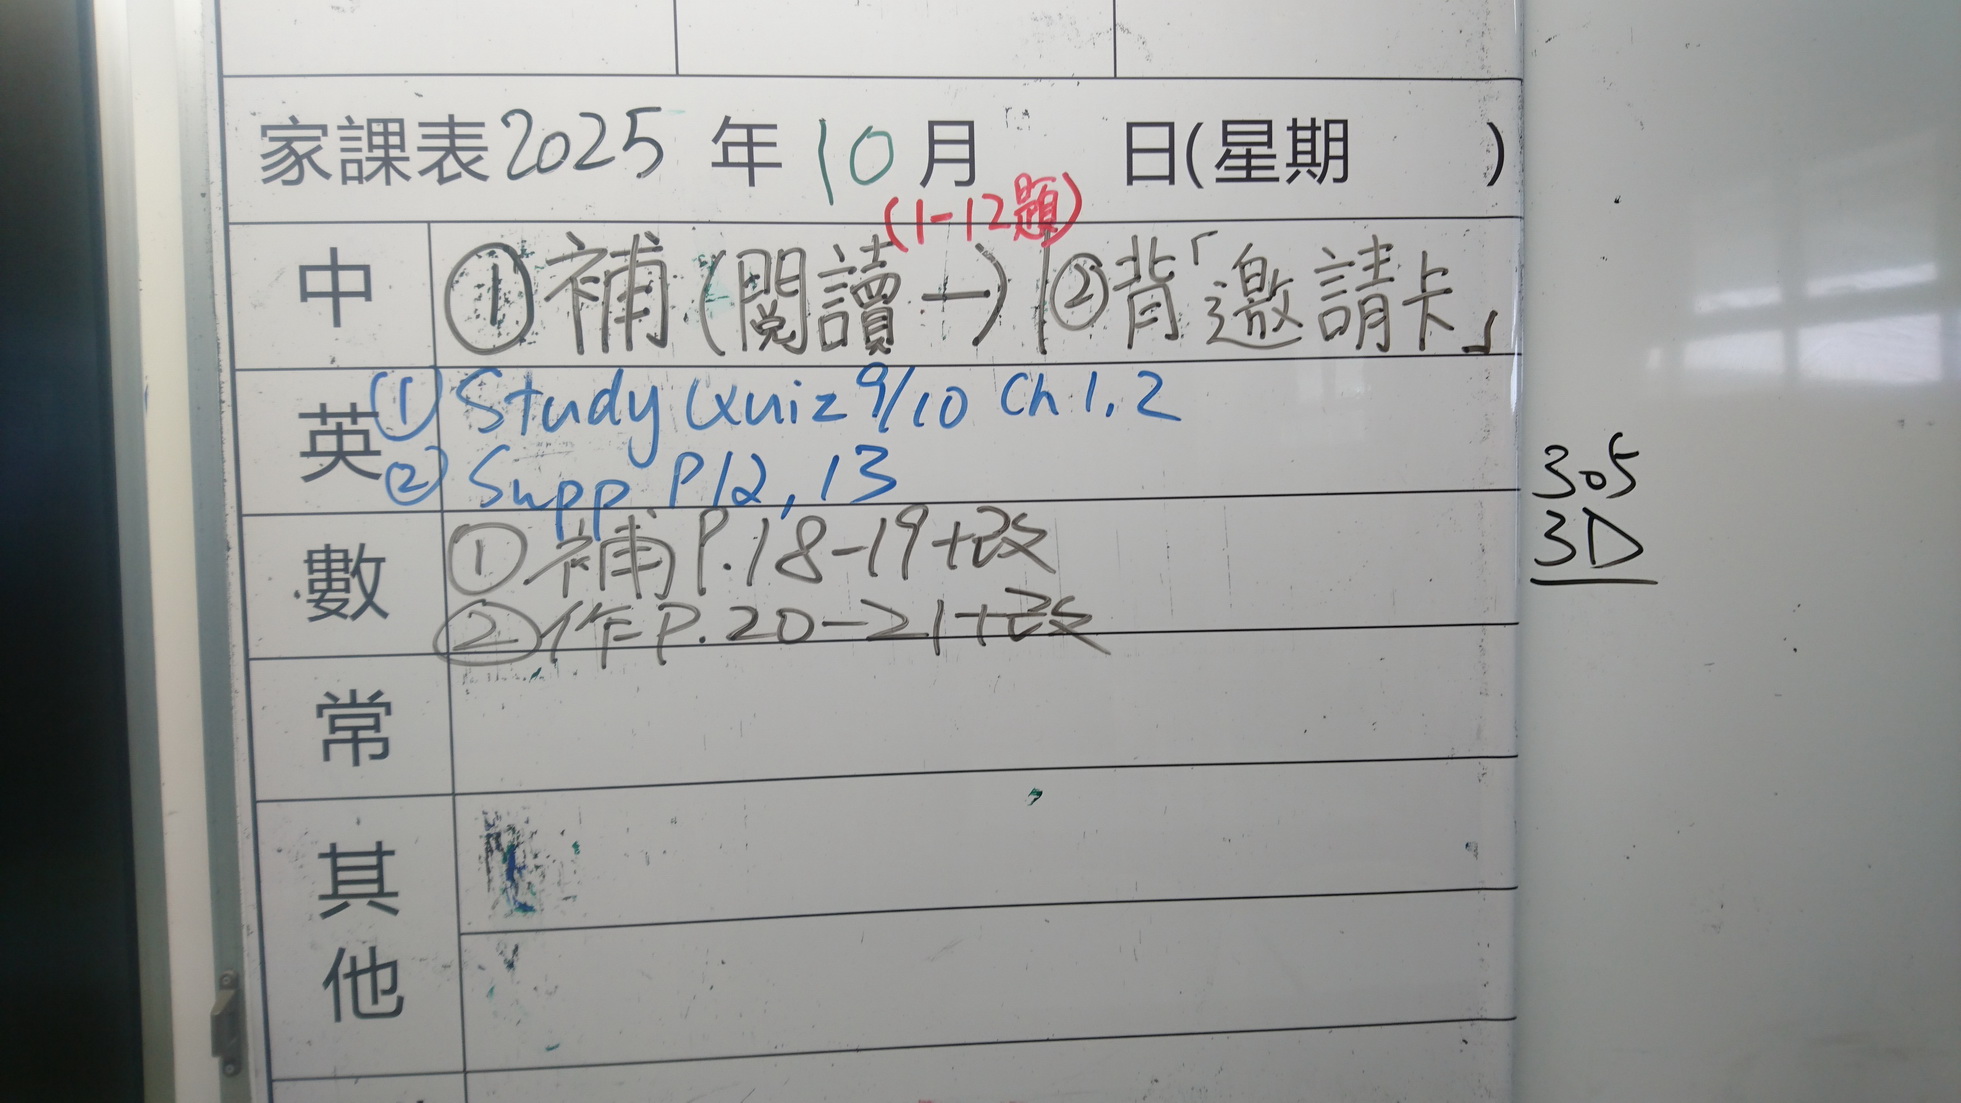 家課表2025 年 10 月 日(星期 )
(1-12題)
中 ①補(閱讀一)|②背「邀請卡」
英 (1) Study Quiz 9/10 Ch 1, 2
② Supp P12, 13
數 ①補P.18-19+改
②作P.20-21+改
常
其他
305
3D